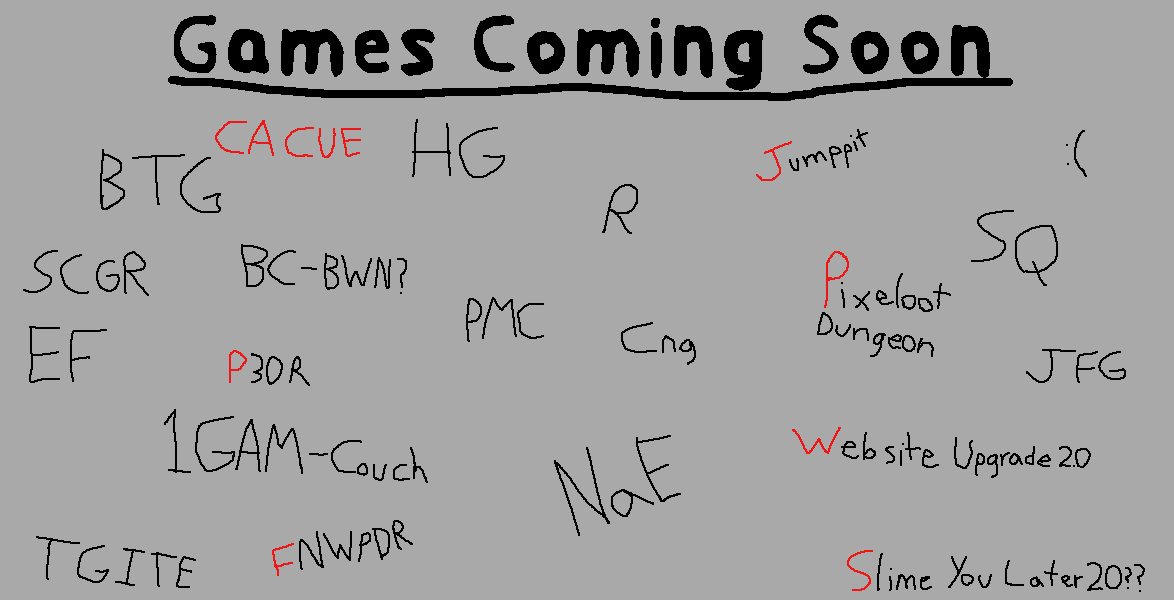 Games Coming Soon
CACUE
HG
Jumppit
:(
BTG
R
SQ
SCGR
BC-BWN?
Pixeloot
Dungeon
PMC
Cng
EF
P30R
JFG
1GAM-Couch
Website Upgrade 2.0
NaE
TGITE
FNWPDR
Slime You Later 2.0??